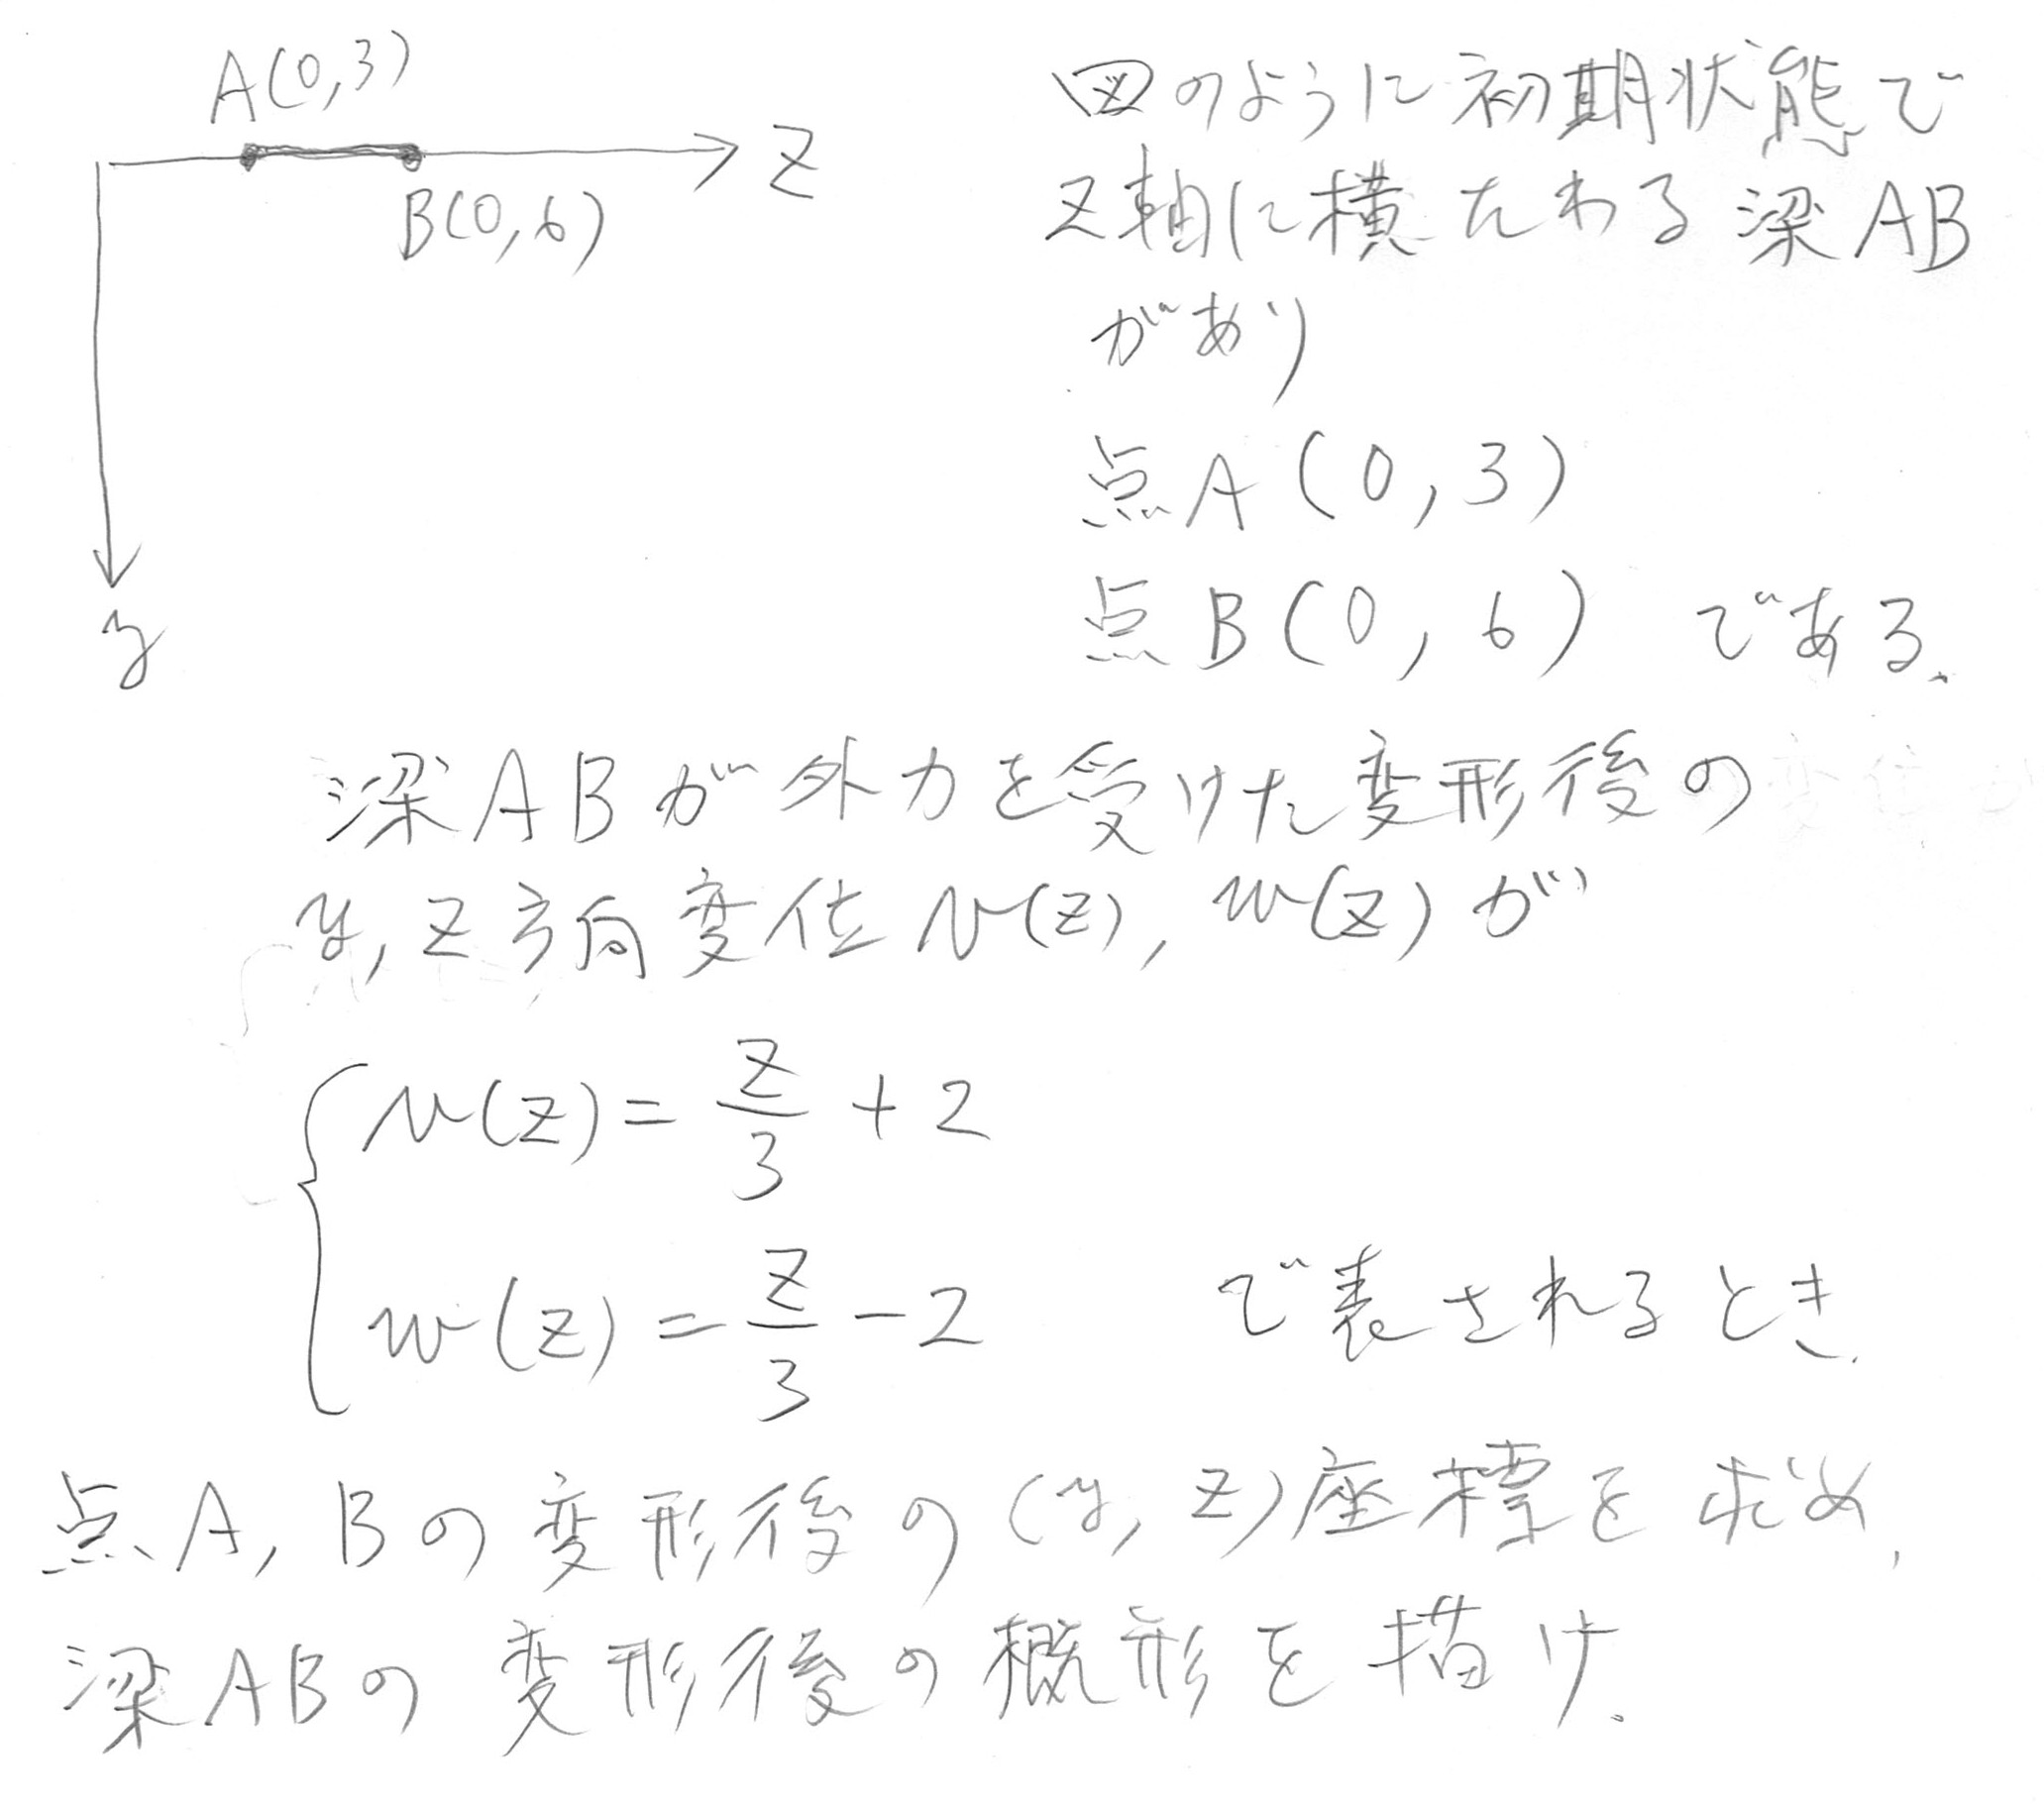 A(0,3)
Z
B(0,6)
y
図のように初期状態で
Z軸に横たわる梁AB
があり
点A(0,3)
点B(0,6) である.
梁ABが外力を受けた変形後の
y, z方向変位v(z), w(z)が
v(z) = z/3 + 2
w(z) = z/3 - 2 で表されるとき.
点A, Bの変形後の(y, z)座標を求め,
梁ABの変形後の概形を描け.